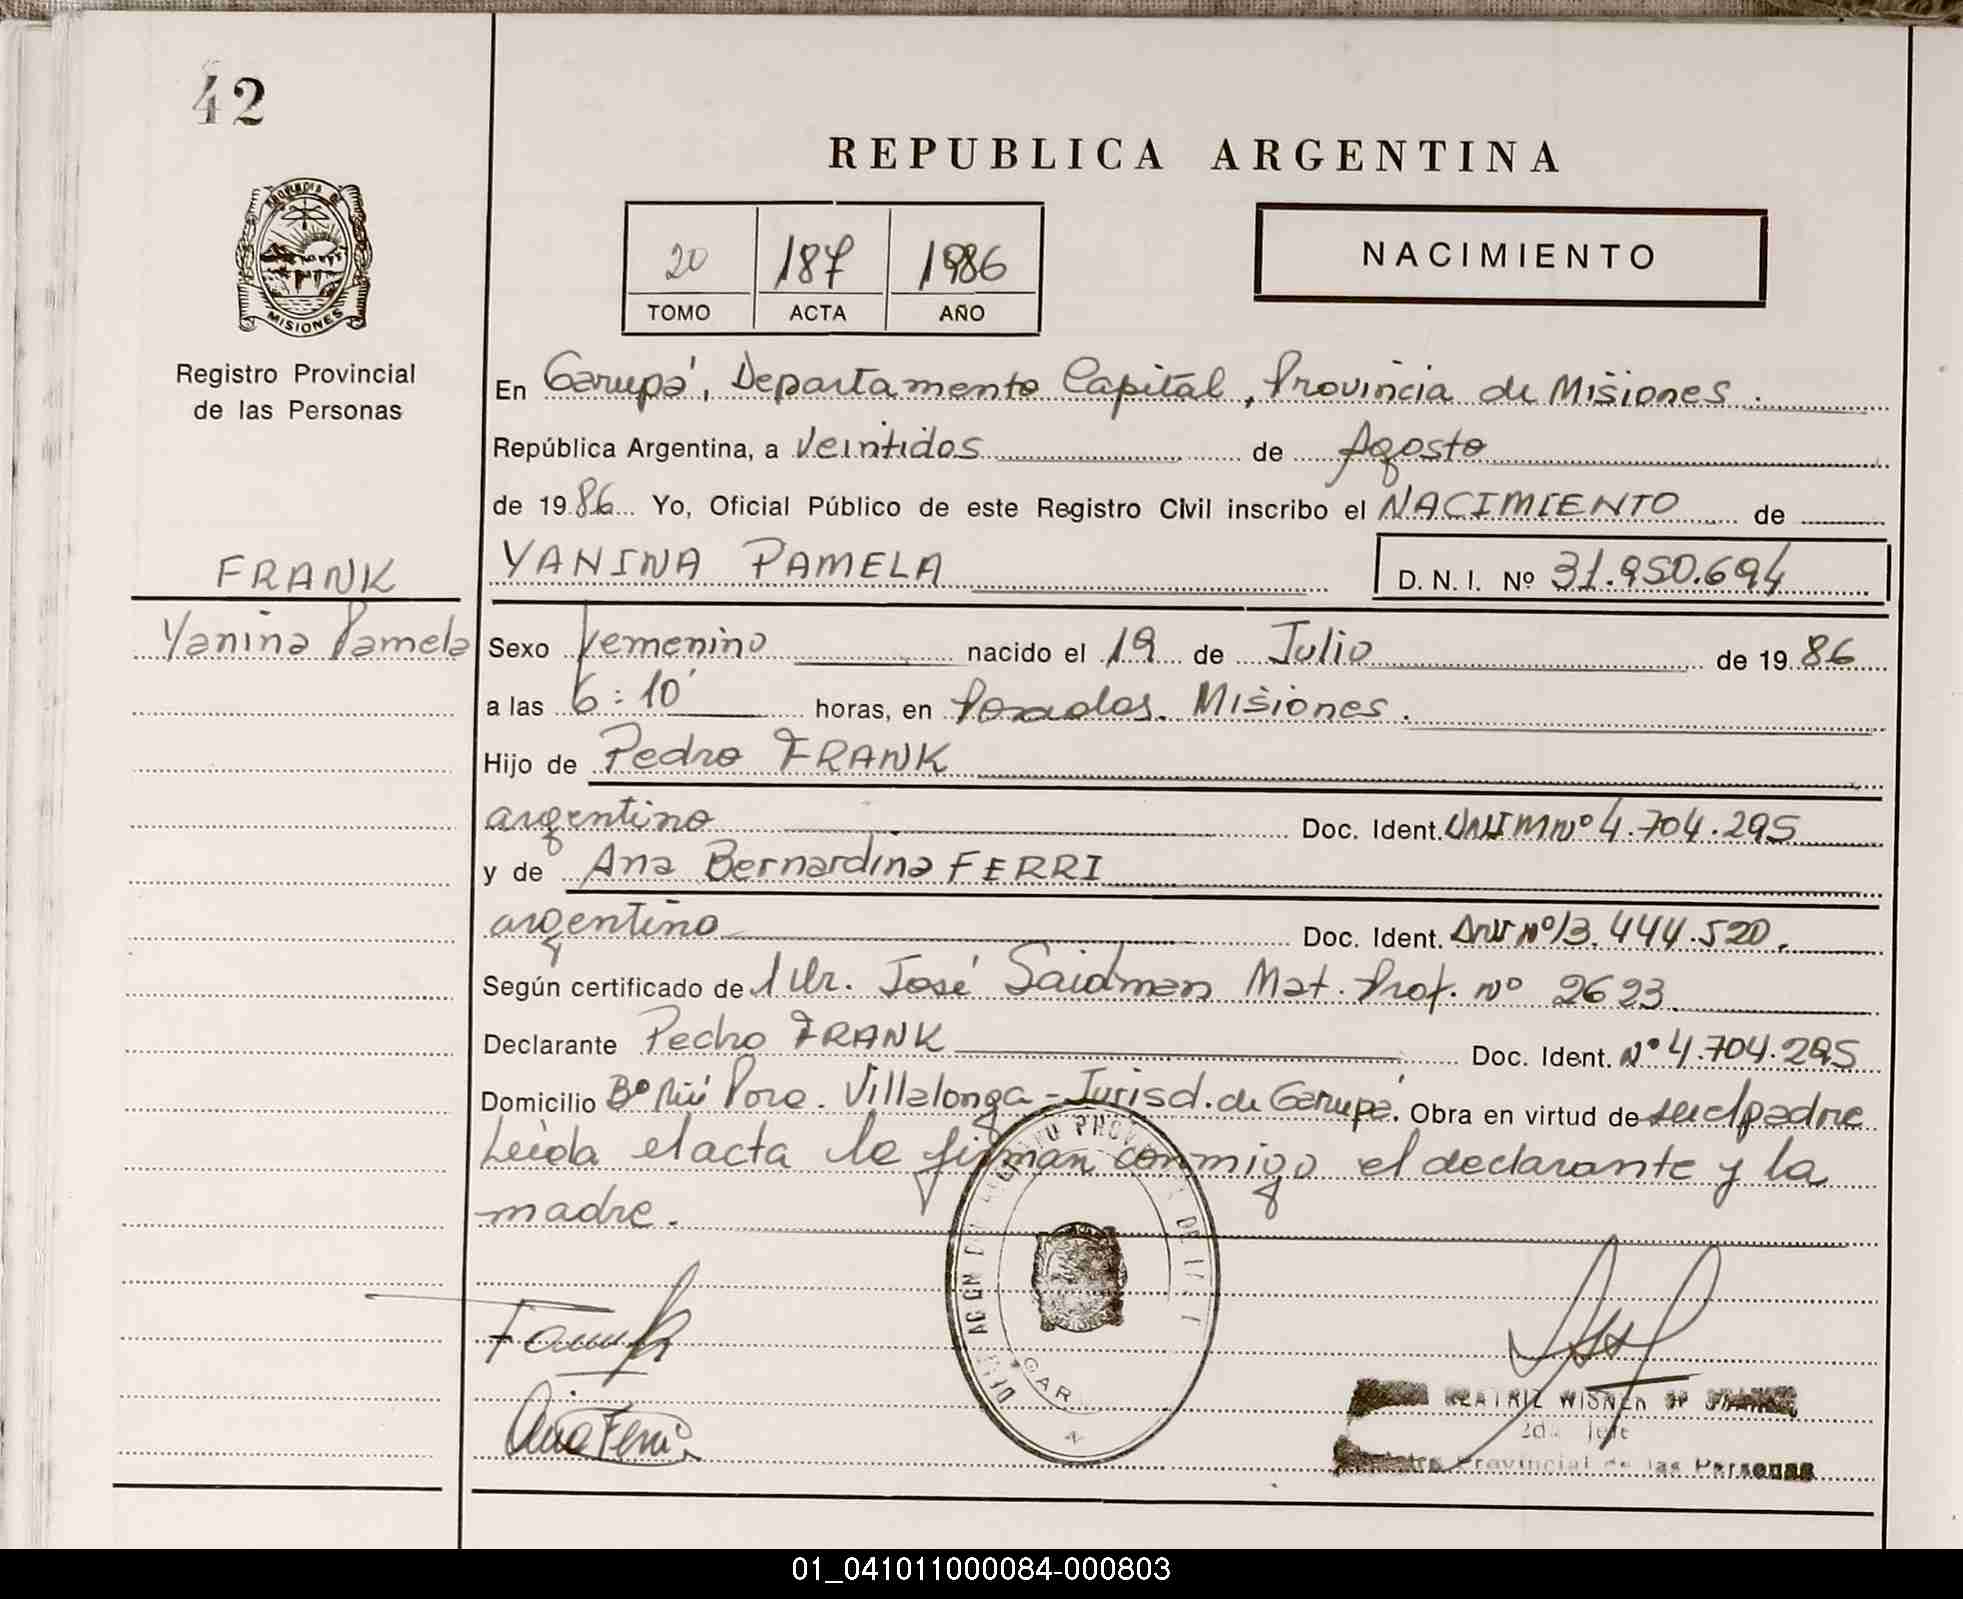 42
REPUBLICA ARGENTINA
20 187 1986
TOMO ACTA AÑO
NACIMIENTO
PROVINCIA DE
MISIONES
Registro Provincial
de las Personas
En Garupá, Departamento Capital, Provincia de Misiones.
República Argentina, a Veintidos de Agosto
de 1986 Yo, Oficial Público de este Registro Civil inscribo el NACIMIENTO de
FRANK
YANINA PAMELA D.N.I. Nº 31.950.694
Yanina Pamela
Sexo Femenino nacido el 19 de Julio de 1986
a las 6:10' horas, en Posadas. Misiones.
Hijo de Pedro FRANK
argentino Doc. Ident. Nº 4.704.295
y de Ana Bernardina FERRI
argentino Doc. Ident. Nº 13.444.520.
Según certificado de Dr. José Saidman Mat. Prof. Nº 2623
Declarante Pedro FRANK Doc. Ident. Nº 4.704.295
Domicilio Bº Porá. Villalonga - Jurisd. de Garupá. Obra en virtud de ser el padre
Leída el acta la firman conmigo el declarante y la
madre.
Frank
Ana Ferri
GAR
BEATRIZ WISNER DE
2do Jefe
Registro Provincial de las Personas
01_041011000084-000803